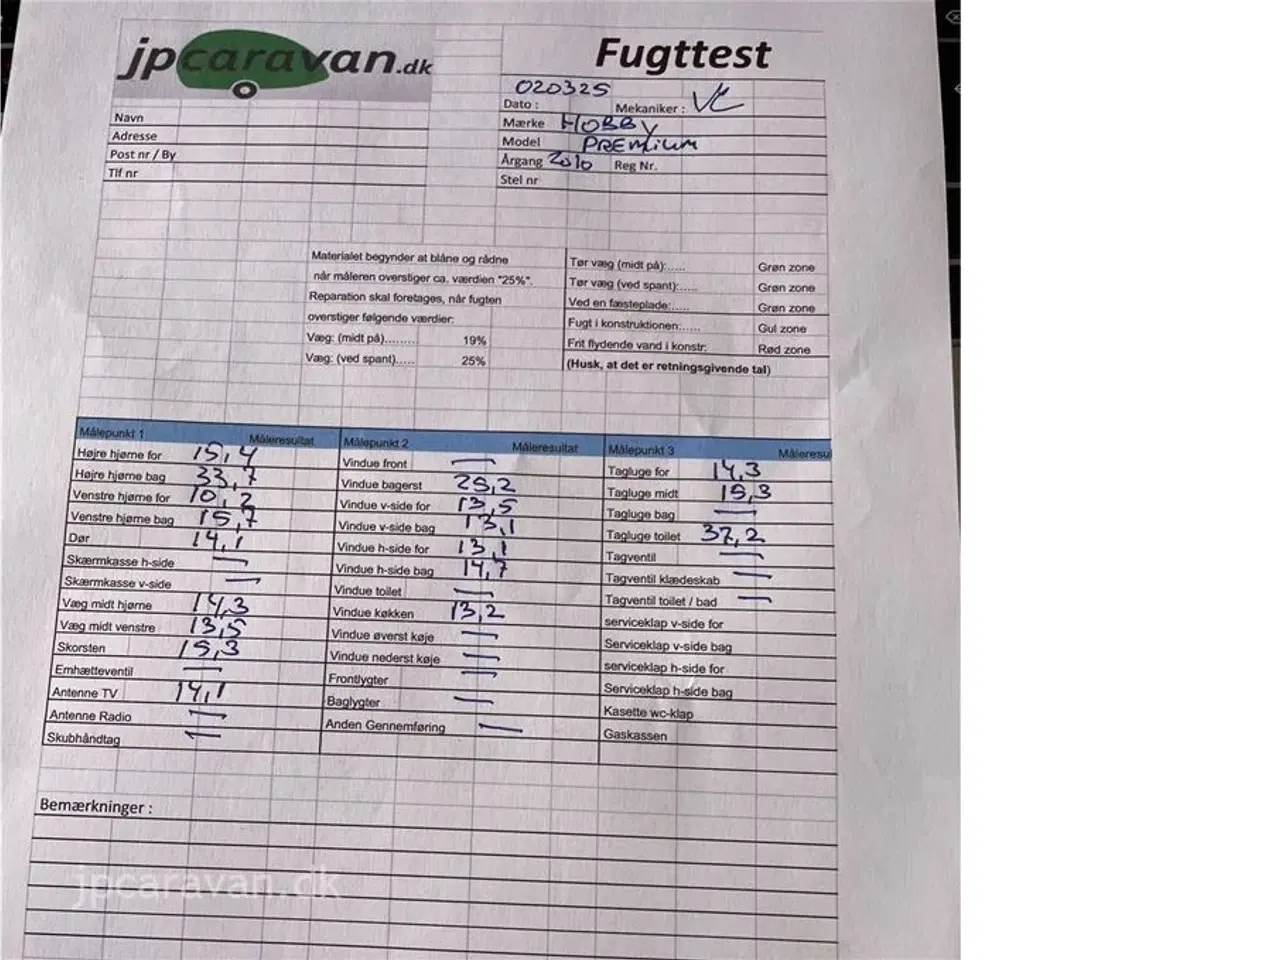 jpcaravan.dk
Fugttest
020325
Dato :
Mekaniker :
Navn
Mærke HOBBY
Adresse
Model PREMIUM
Post nr / By
Årgang 2010 Reg Nr.
Tlf nr
Stel nr
Materialet begynder at blåne og rådne
når måleren overstiger ca. værdien "25%".
Reparation skal foretages, når fugten
overstiger følgende værdier:
Væg: (midt på)......... 19%
Væg: (ved spant)..... 25%
Tør væg (midt på):..... Grøn zone
Tør væg (ved spant):..... Grøn zone
Ved en fæsteplade:..... Grøn zone
Fugt i konstruktionen:..... Gul zone
Frit flydende vand i konstr: Rød zone
(Husk, at det er retningsgivende tal)
Målepunkt 1 Måleresultat
Højre hjørne for 15,4
Højre hjørne bag 33,7
Venstre hjørne for 10,2
Venstre hjørne bag 15,7
Dør 14,1
Skærmkasse h-side —
Skærmkasse v-side —
Væg midt hjørne 14,3
Væg midt venstre 13,5
Skorsten 15,3
Emhætteventil —
Antenne TV 14,1
Antenne Radio —
Skubhåndtag —
Målepunkt 2 Måleresultat
Vindue front —
Vindue bagerst 25,2
Vindue v-side for 13,5
Vindue v-side bag 13,1
Vindue h-side for 13,1
Vindue h-side bag 14,7
Vindue toilet —
Vindue køkken 13,2
Vindue øverst køje —
Vindue nederst køje —
Frontlygter —
Baglygter —
Anden Gennemføring —
Målepunkt 3 Måleresul
Tagluge for 14,3
Tagluge midt 15,3
Tagluge bag —
Tagluge toilet 37,2
Tagventil —
Tagventil klædeskab —
Tagventil toilet / bad —
serviceklap v-side for
Serviceklap v-side bag
serviceklap h-side for
Serviceklap h-side bag
Kasette wc-klap
Gaskassen
Bemærkninger :
jpcaravan.dk